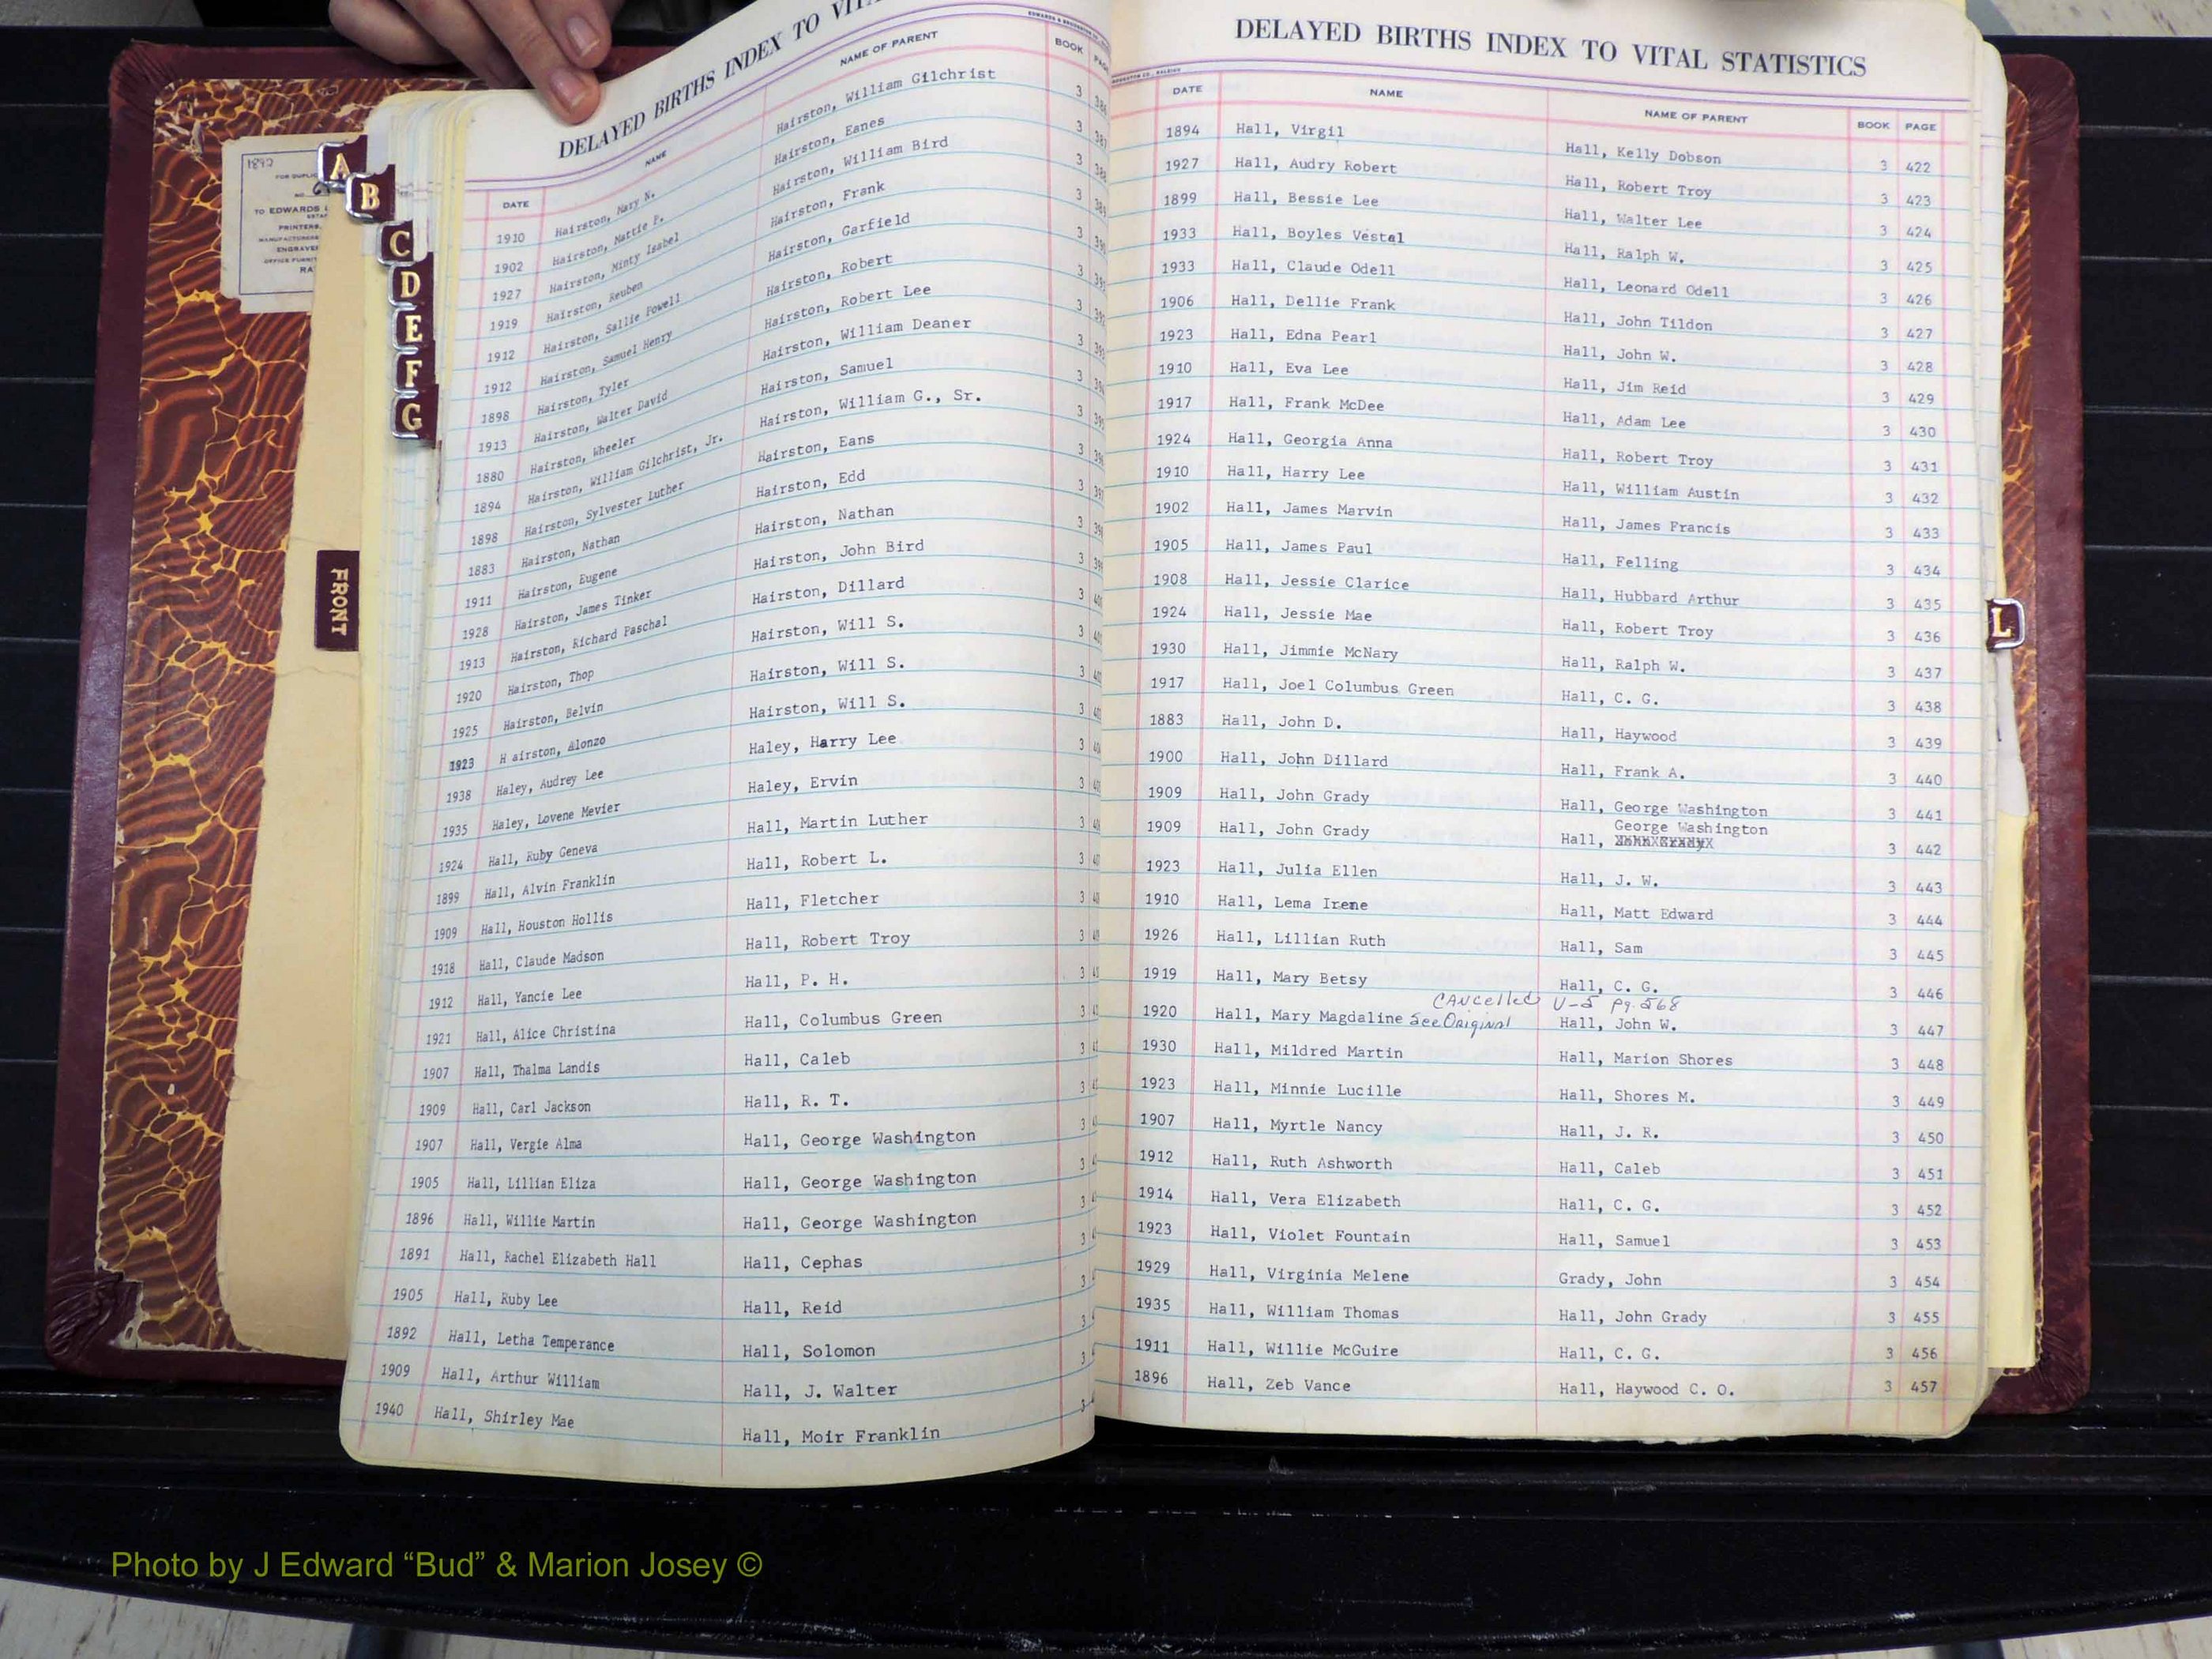 DELAYED BIRTHS INDEX TO
DATE NAME NAME OF PARENT BOOK
1910 Hairston, Mary N. Hairston, William Gilchrist 3 386
1902 Hairston, Mattie P. Hairston, Eanes 3 387
1927 Hairston, Minty Isabel Hairston, William Bird 3 388
1919 Hairston, Reuben Hairston, Frank 3 389
1912 Hairston, Sallie Powell Hairston, Garfield 3 390
1912 Hairston, Samuel Henry Hairston, Robert 3 391
1898 Hairston, Tyler Hairston, Robert Lee 3 392
1913 Hairston, Walter David Hairston, William Deaner 3 393
1880 Hairston, Wheeler Hairston, Samuel 3 394
1894 Hairston, William Gilchrist, Jr. Hairston, William G., Sr. 3 395
1898 Hairston, Sylvester Luther Hairston, Eans 3 396
1883 Hairston, Nathan Hairston, Edd 3 397
1911 Hairston, Eugene Hairston, Nathan 3 398
1928 Hairston, James Tinker Hairston, John Bird 3 399
1913 Hairston, Richard Paschal Hairston, Dillard 3
1920 Hairston, Thop Hairston, Will S. 3
1925 Hairston, Belvin Hairston, Will S. 3
1923 H airston, Alonzo Hairston, Will S. 3
1938 Haley, Audrey Lee Haley, Harry Lee 3
1935 Haley, Lovene Mevier Haley, Ervin 3
1924 Hall, Ruby Geneva Hall, Martin Luther 3
1899 Hall, Alvin Franklin Hall, Robert L. 3
1909 Hall, Houston Hollis Hall, Fletcher 3
1918 Hall, Claude Madson Hall, Robert Troy 3
1912 Hall, Yancie Lee Hall, P. H. 3
1921 Hall, Alice Christina Hall, Columbus Green 3
1907 Hall, Thalma Landis Hall, Caleb 3
1909 Hall, Carl Jackson Hall, R. T. 3
1907 Hall, Vergie Alma Hall, George Washington 3
1905 Hall, Lillian Eliza Hall, George Washington 3
1896 Hall, Willie Martin Hall, George Washington 3
1891 Hall, Rachel Elizabeth Hall Hall, Cephas 3
1905 Hall, Ruby Lee Hall, Reid 3
1892 Hall, Letha Temperance Hall, Solomon 3
1909 Hall, Arthur William Hall, J. Walter 3
1940 Hall, Shirley Mae Hall, Moir Franklin 3
DELAYED BIRTHS INDEX TO VITAL STATISTICS
DATE NAME NAME OF PARENT BOOK PAGE
1894 Hall, Virgil Hall, Kelly Dobson 3 422
1927 Hall, Audry Robert Hall, Robert Troy 3 423
1899 Hall, Bessie Lee Hall, Walter Lee 3 424
1933 Hall, Boyles Vestal Hall, Ralph W. 3 425
1933 Hall, Claude Odell Hall, Leonard Odell 3 426
1906 Hall, Dellie Frank Hall, John Tildon 3 427
1923 Hall, Edna Pearl Hall, John W. 3 428
1910 Hall, Eva Lee Hall, Jim Reid 3 429
1917 Hall, Frank McDee Hall, Adam Lee 3 430
1924 Hall, Georgia Anna Hall, Robert Troy 3 431
1910 Hall, Harry Lee Hall, William Austin 3 432
1902 Hall, James Marvin Hall, James Francis 3 433
1905 Hall, James Paul Hall, Felling 3 434
1908 Hall, Jessie Clarice Hall, Hubbard Arthur 3 435
1924 Hall, Jessie Mae Hall, Robert Troy 3 436
1930 Hall, Jimmie McNary Hall, Ralph W. 3 437
1917 Hall, Joel Columbus Green Hall, C. G. 3 438
1883 Hall, John D. Hall, Haywood 3 439
1900 Hall, John Dillard Hall, Frank A. 3 440
1909 Hall, John Grady Hall, George Washington 3 441
George Washington
1909 Hall, John Grady Hall, 3 442
1923 Hall, Julia Ellen Hall, J. W. 3 443
1910 Hall, Lema Irene Hall, Matt Edward 3 444
1926 Hall, Lillian Ruth Hall, Sam 3 445
1919 Hall, Mary Betsy Hall, C. G. 3 446
CANcelled U-5 Pg. 568
1920 Hall, Mary Magdaline See Original Hall, John W. 3 447
1930 Hall, Mildred Martin Hall, Marion Shores 3 448
1923 Hall, Minnie Lucille Hall, Shores M. 3 449
1907 Hall, Myrtle Nancy Hall, J. R. 3 450
1912 Hall, Ruth Ashworth Hall, Caleb 3 451
1914 Hall, Vera Elizabeth Hall, C. G. 3 452
1923 Hall, Violet Fountain Hall, Samuel 3 453
1929 Hall, Virginia Melene Grady, John 3 454
1935 Hall, William Thomas Hall, John Grady 3 455
1911 Hall, Willie McGuire Hall, C. G. 3 456
1896 Hall, Zeb Vance Hall, Haywood C. O. 3 457
A
B
C
D
E
F
G
L
FRONT
1892
TO EDWARDS &
PRINTERS,
Photo by J Edward “Bud” & Marion Josey ©